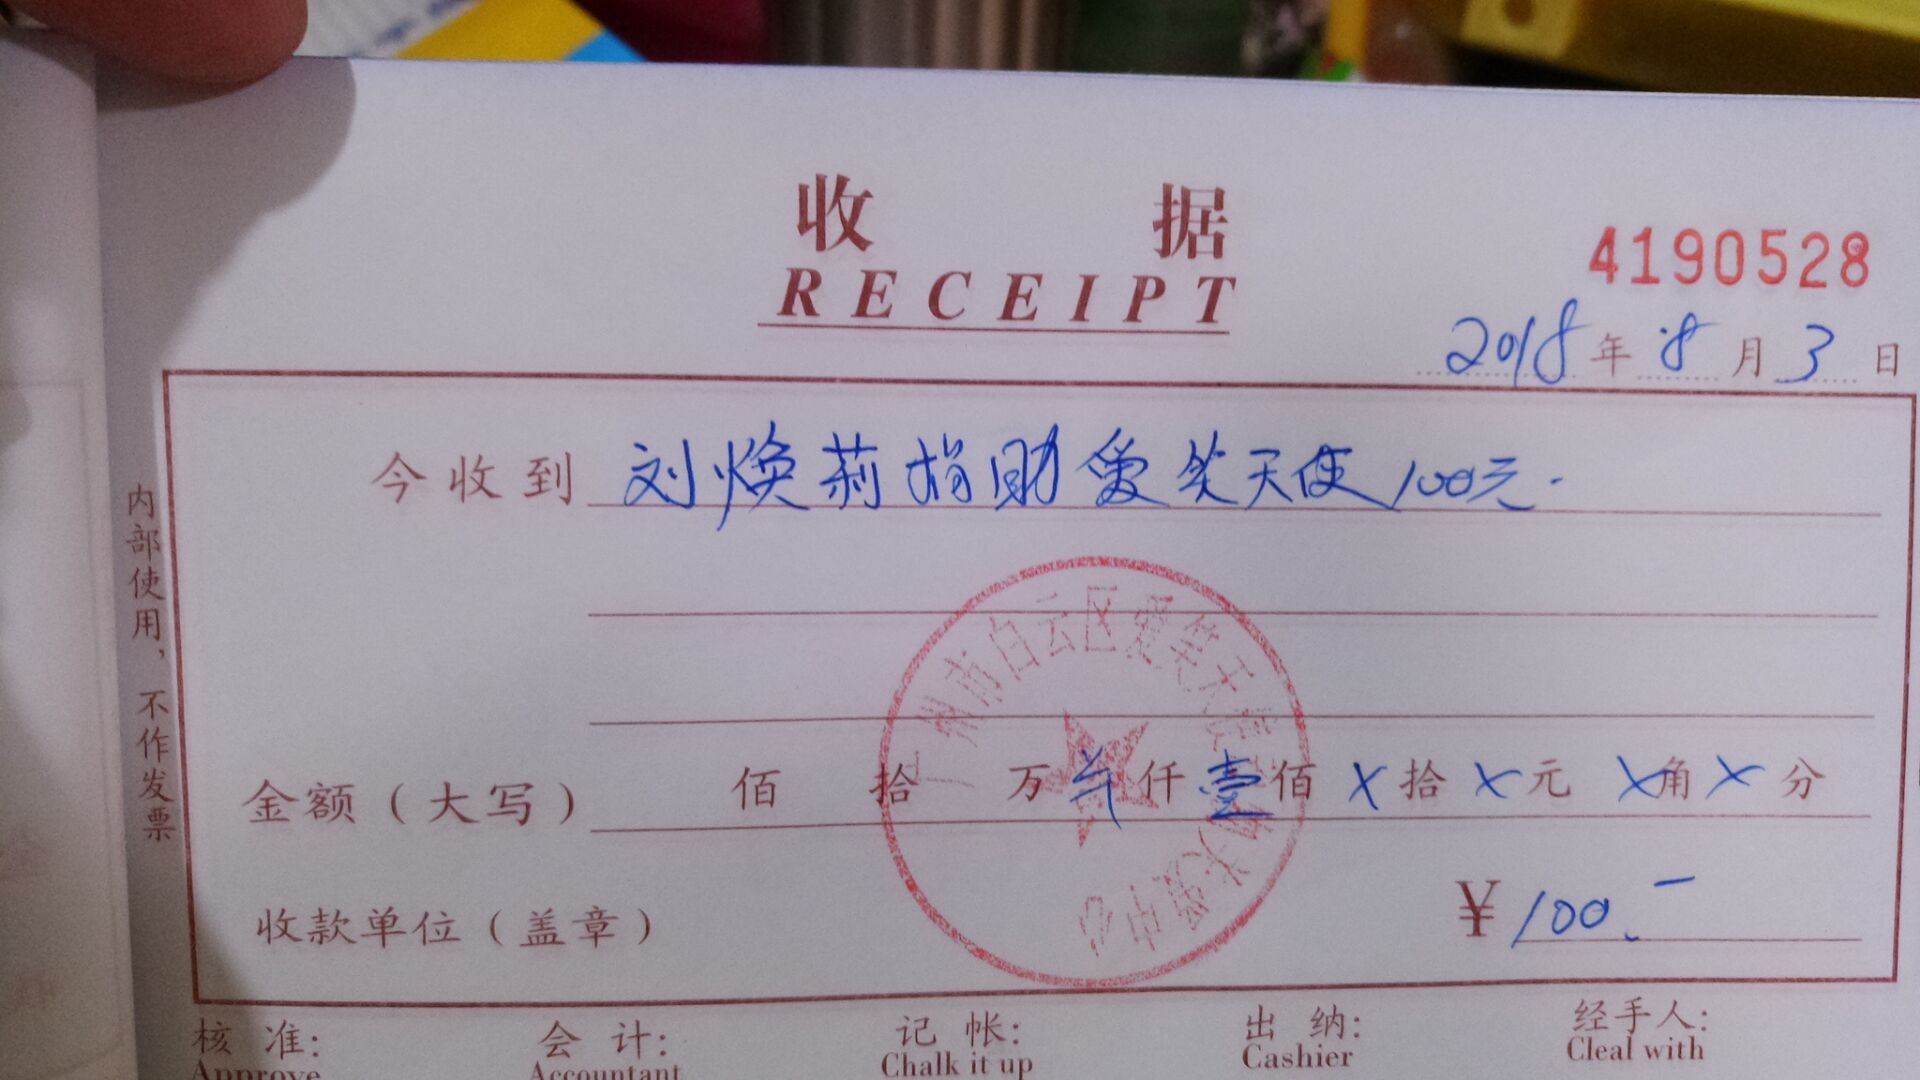 收据
RECEIPT
4190528
2018年8月3日
今收到 刘焕莉捐助爱笑天使100元.
内部使用，不作发票
广州市白云区爱笑天使
关爱中心
金额（大写） 佰 拾 万 仟壹佰X拾X元X角X分
收款单位（盖章） ¥100.-
核准: 会计: 记帐: 出纳: 经手人:
Approve Accountant Chalk it up Cashier Cleal with